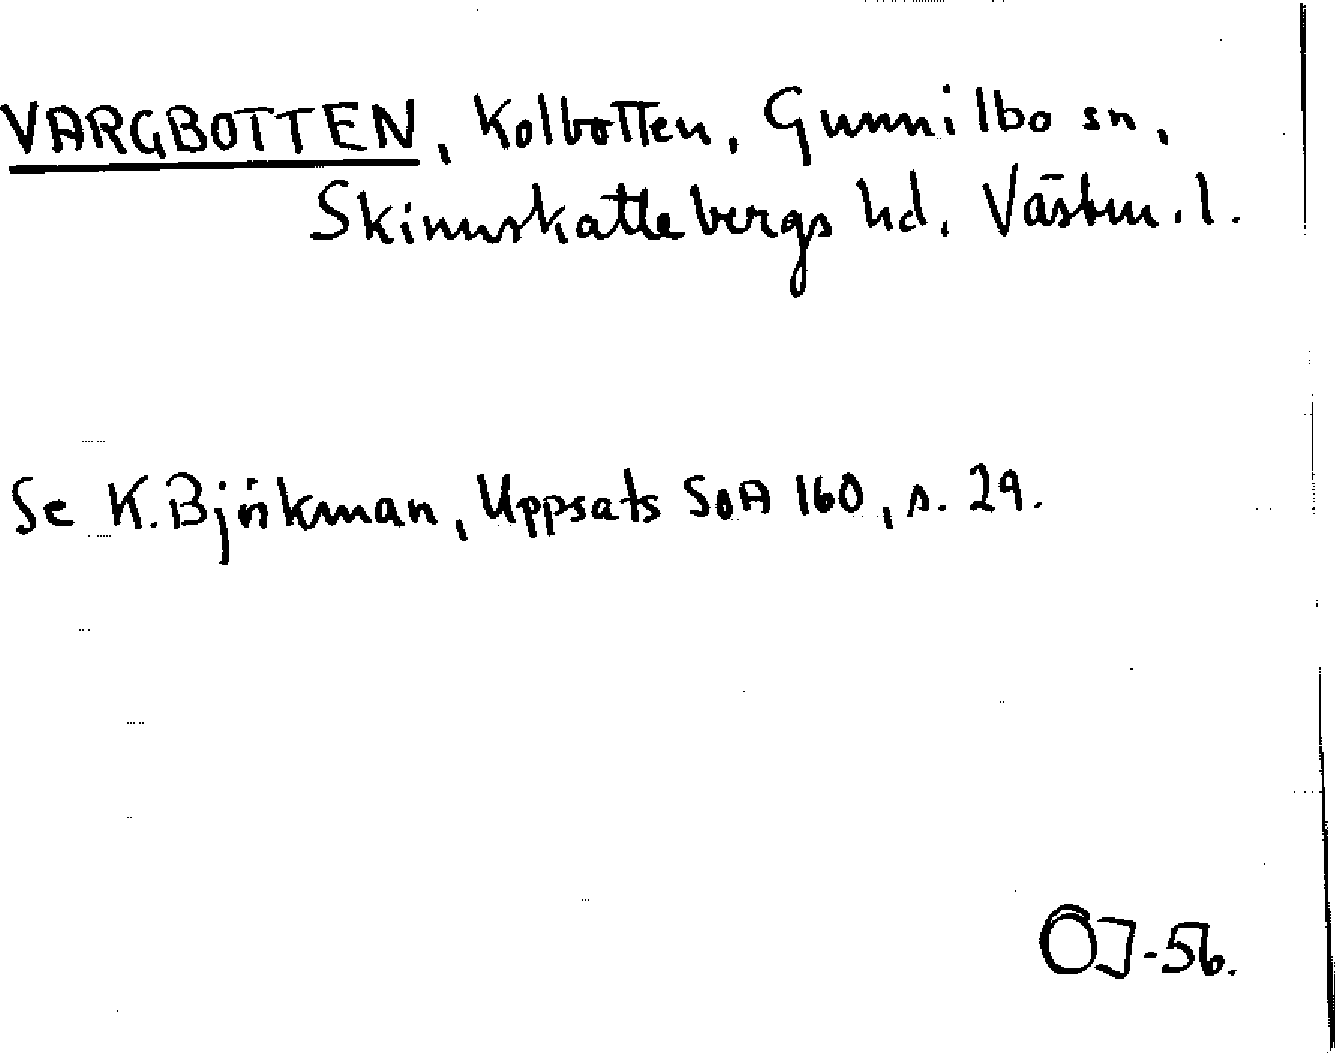 VARGBOTTEN, Kolbotten, Gunnilbo sn,
Skinnskattebergs hd, Västm. l.
Se K. Björkman, Uppsats SOA 160, s. 29.
OJ-56.